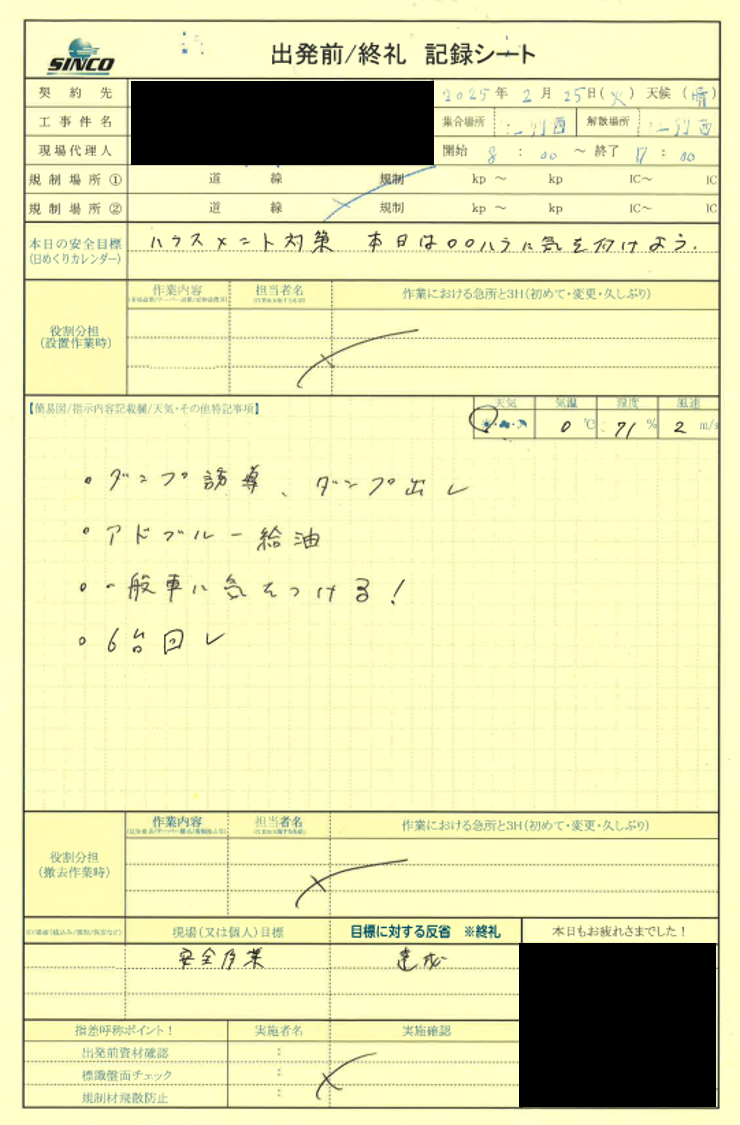 SINCO
出発前/終礼 記録シート
契約先
2025年 2月 25日(火) 天候(晴)
工事件名
集合場所 江別西 解散場所 江別西
現場代理人
開始 8:00 ～ 終了 17:00
規制場所① 道 線 規制 kp ～ kp IC～ IC
規制場所② 道 線 規制 kp ～ kp IC～ IC
本日の安全目標
(日めくりカレンダー)
ハラスメント対策 本日は○○ハラに気を付けよう.
作業内容 担当者名 作業における急所と3H(初めて・変更・久しぶり)
役割分担
(設置作業時)
【簡易図/指示内容記載欄/天気・その他特記事項】
天気 気温 湿度 風速
0℃ 71% 2m/s
・ダンプ誘導、ダンプ出し
・アドブルー給油
・一般車に気をつける!
・6台回し
作業内容 担当者名 作業における急所と3H(初めて・変更・久しぶり)
役割分担
(撤去作業時)
現場(又は個人)目標 目標に対する反省 ※終礼 本日もお疲れさまでした!
安全作業 達成
指差呼称ポイント! 実施者名 実施確認
出発前資材確認 :
標識盤面チェック :
規制材飛散防止 :